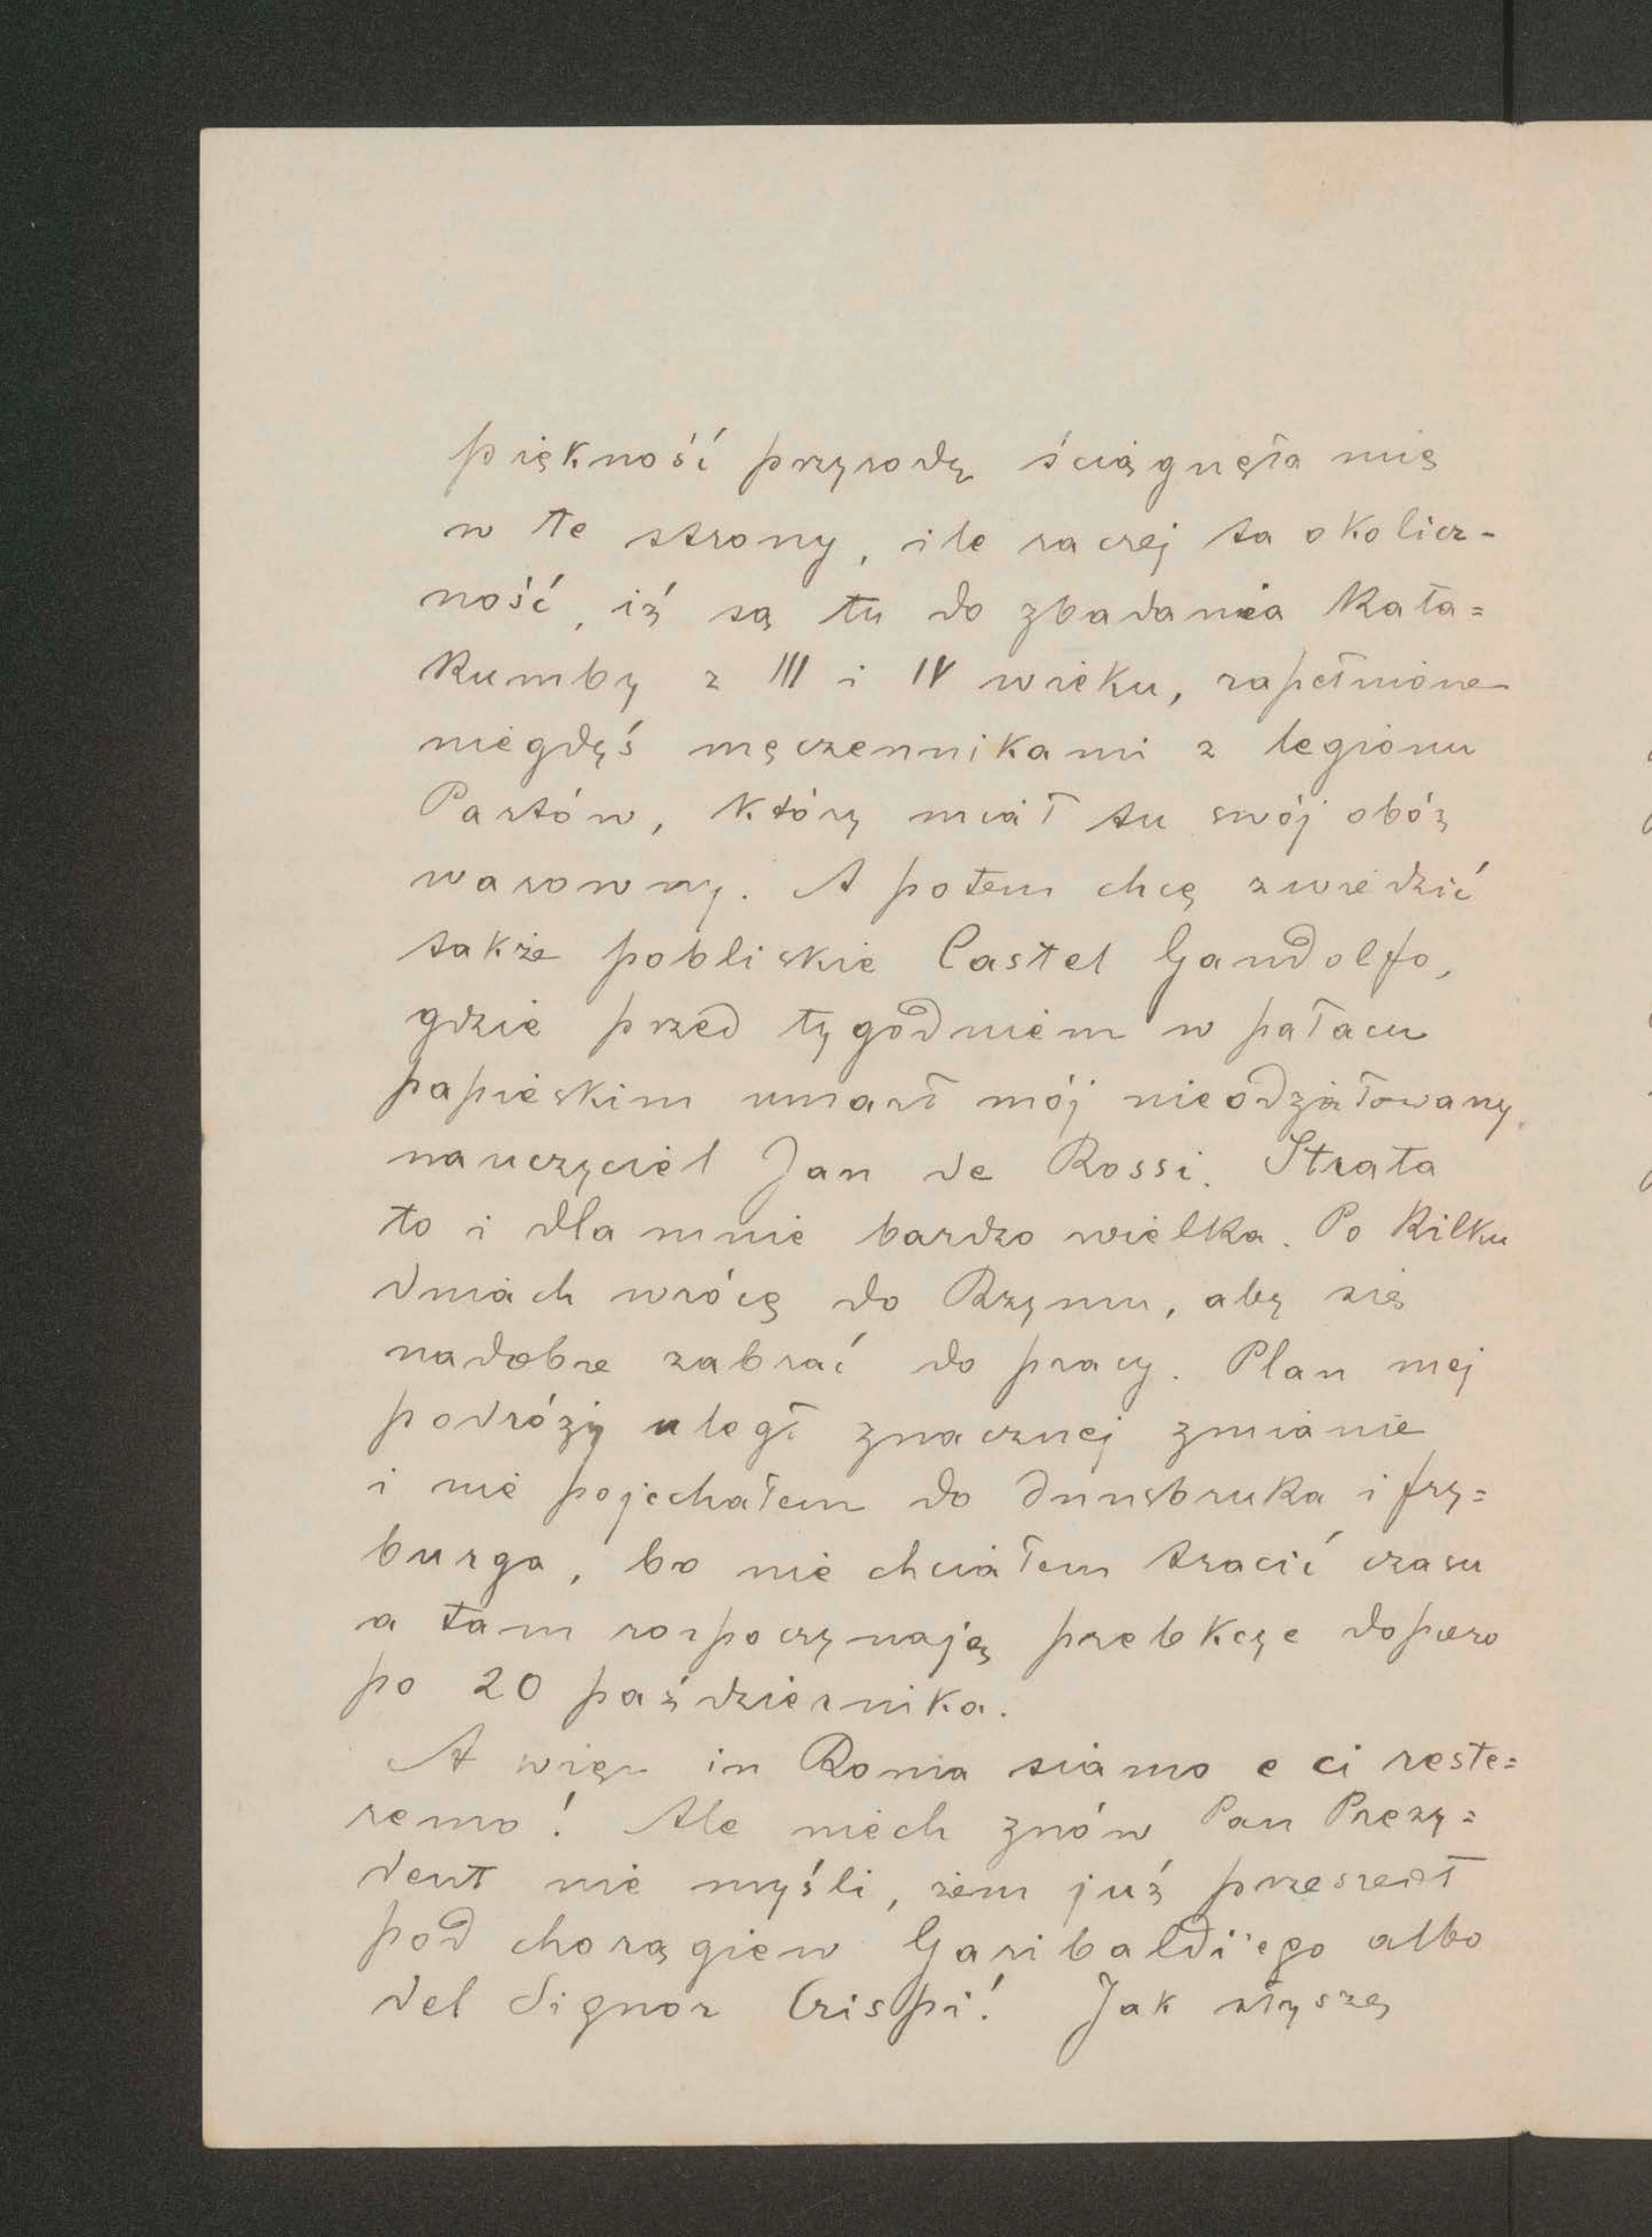 piękność przyrody ściągnęła mię
w te strony, ile raczej ta okolicz-
ność, iż są tu do zbadania kata=
kumby z III i IV wieku, zapełnione
niegdyś męczennikami z legionu
Partów, który miał tu swój obóz
warowny. A potem chcę zwiedzić
także pobliskie Castel Gandolfo,
gdzie przed tygodniem w pałacu
papieskim umarł mój nieodżałowany
nauczyciel Jan de Rossi. Strata
to i dla mnie bardzo wielka. Po kilku
dniach wrócę do Rzymu, aby się
nadobre zabrać do pracy. Plan mej
podróży uległ znacznej zmianie
i nie pojechałem do Innsbruka i fry=
burga, bo nie chciałem tracić czasu
a tam rozpoczynają prelekcye dopiero
po 20 października.
A więc in Roma siamo e ci reste=
remo! Ale niech znów Pan Prezy=
dent nie myśli, żem już przeszedł
pod chorągiew Garibaldi'ego albo
del Signor Crispi! Jak słyszę